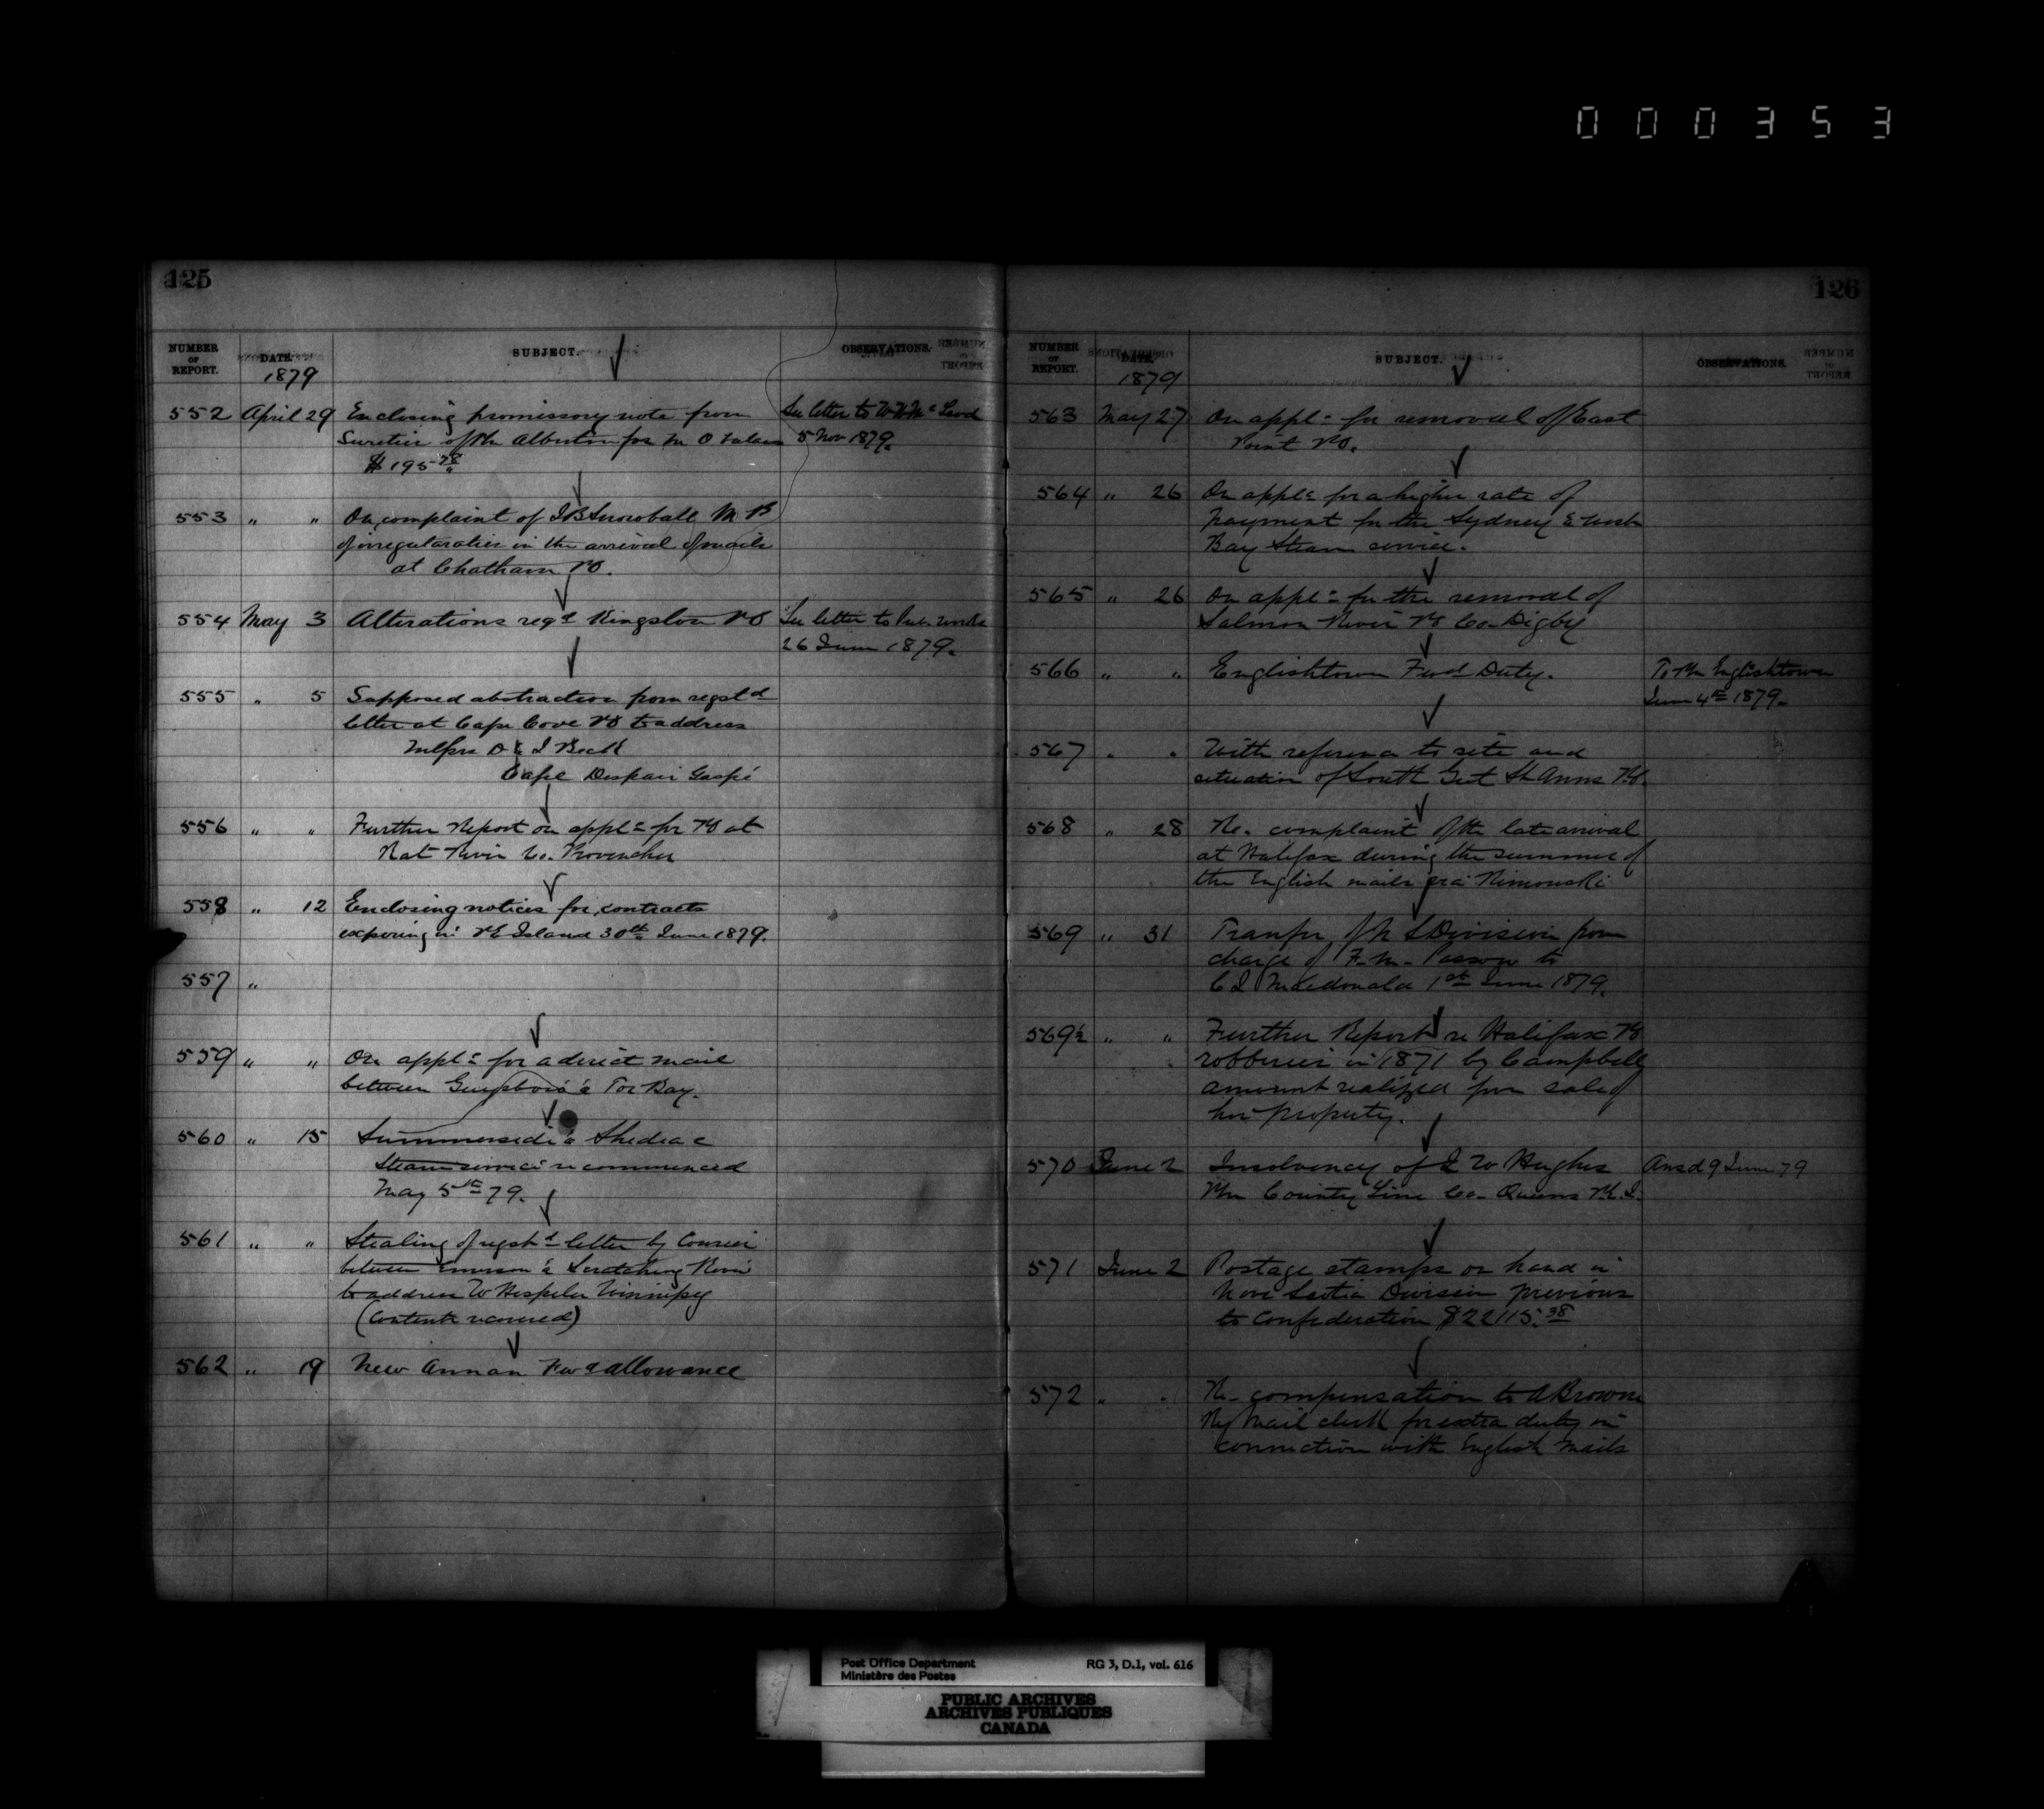 000353
125
NUMBER OF REPORT. DATE. SUBJECT. OBSERVATIONS.
1879
552 April 29 Enclosing promissory note from See letter to McLeod
Sureties of Pm Alberton for M O 5 Nov 1879.
$195 78
553 " " On complaint of J B Snowball M P
of irregularaties in the arrival of mails
at Chatham PO.
554 May 3 Alterations reqd Kingston PO See letter to Pub. Works
26 June 1879.
555 " 5 Supposed abstraction from regstd
letter at Cape Cove PO to address
Messrs D & J
Cape Despair Gaspé
556 " " Further Report on appln for PO at
Rat River Co. Provencher
558 " 12 Enclosing notices for contracts
expiring in PE Island 30th June 1879.
557 "
559 " " On appln for a direct mail
between Guysboro' & Tor Bay.
560 " 15 Summerside & Shediac
Steam service recommenced
May 5th 79.
561 " " Stealing of regstd letter by Courier
between Emerson & Scratching River
to address W Hespeler Winnipeg
(Contents recovered)
562 " 19 New Annan Fwd allowance
126
NUMBER OF REPORT. DATE. SUBJECT. OBSERVATIONS.
1879
563 May 27 On appln for removal of East
Point PO.
564 " 26 On appln for a higher rate of
payment for the Sydney & West
Bay Steam service.
565 " 26 On appln for the removal of
Salmon River PO Co. Digby
566 " " Englishtown Fwd Duty. To Pm Englishtown
June 4th 1879.
567 " " With reference to site and
situation of South Gut St Anns PO.
568 " 28 Re. complaint of the late arrival
at Halifax during the summer of
the English mails via Rimouski
569 " 31 Transfer of N S Division from
charge of F. M. Passow to
C J Macdonald 1st June 1879.
569½ " " Further Report re Halifax PO
robberies in 1871 by Campbell
amount realized from sale of
her property.
570 June 2 Insolvency of J W Hughes Ansd 9 June 79
Pm County Line Co. Queens P.E.I.
571 June 2 Postage stamps on hand in
Nova Scotia Division previous
to Confederation $22115.38
572 " " Re. compensation to A Browne
Ry Mail clerk for extra duty in
connection with English Mails
Post Office Department RG 3, D.1, vol. 616
Ministère des Postes
PUBLIC ARCHIVES
ARCHIVES PUBLIQUES
CANADA